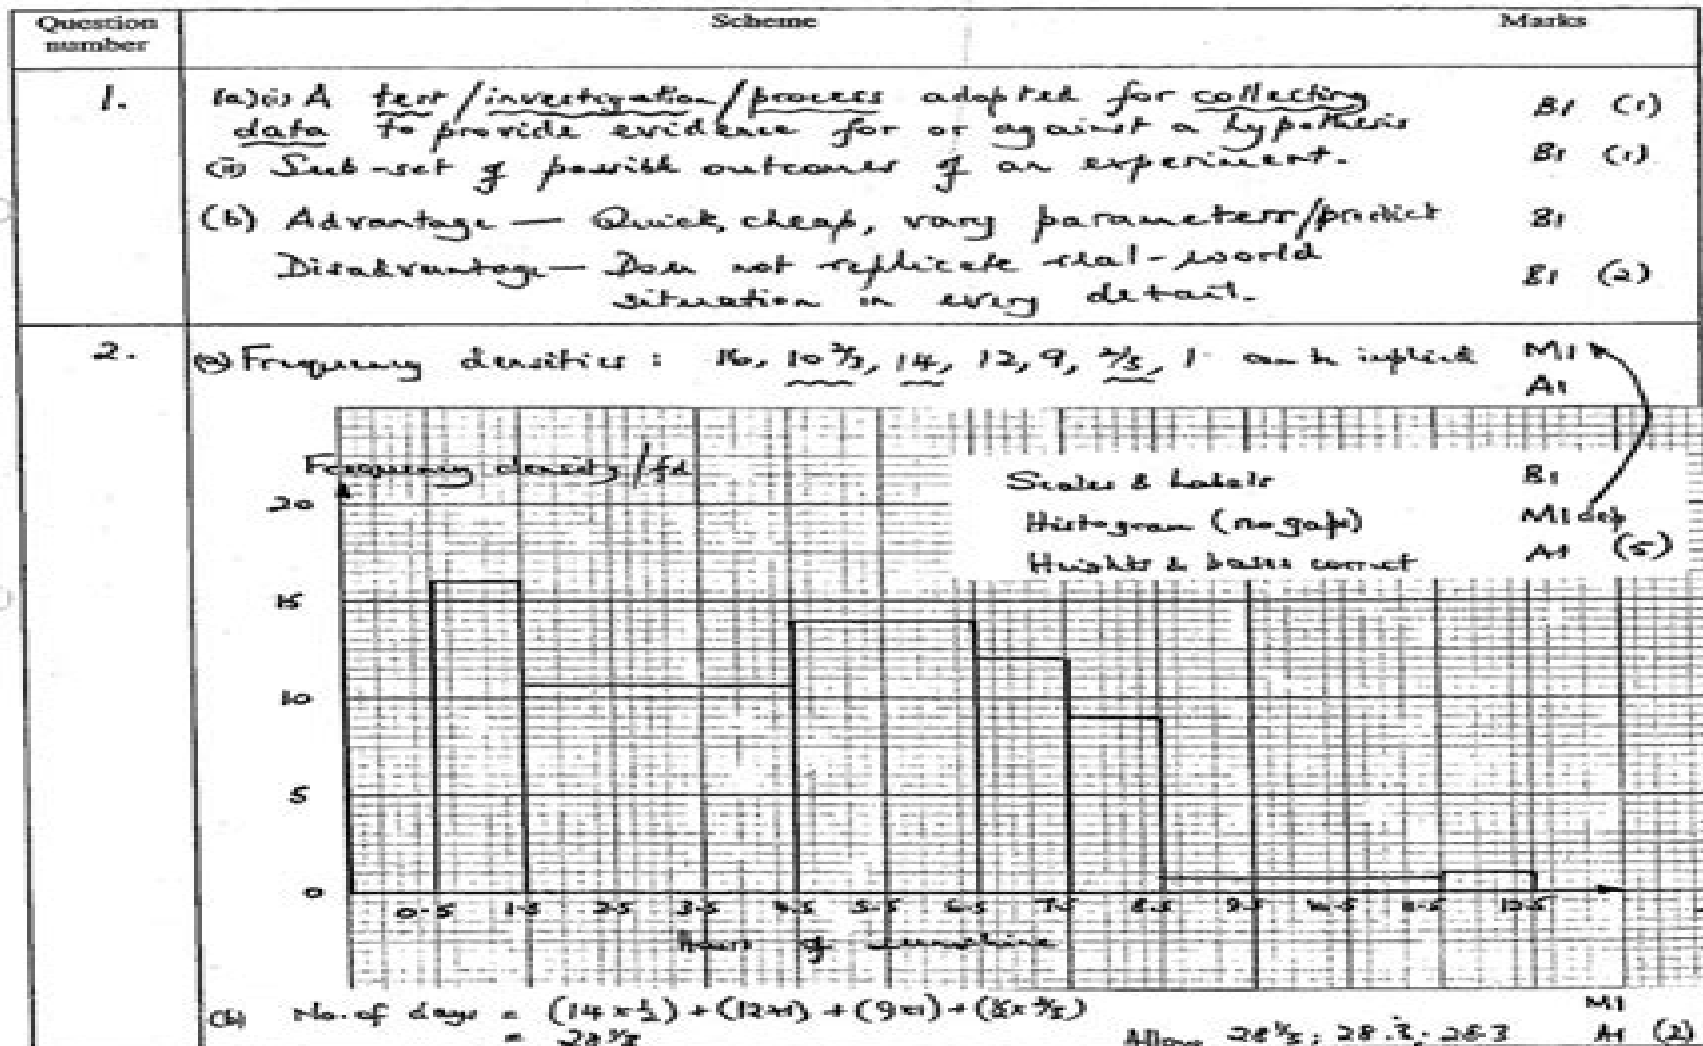 Question number
Scheme
Marks
1.
(a)(i) A test/investigation/process adopted for collecting
B1 (1)
data to provide evidence for or against a hypothesis
(ii) Sub-set of possible outcomes of an experiment.
B1 (1)
(b) Advantage — Quick, cheap, vary parameters/predict
B1
Disadvantage — Does not replicate real-world
situation in every detail.
B1 (2)
2.
(a) Frequency densities : 16, 10 2/3, 14, 12, 9, 1 can be implied
M1
A1
Frequency density/fd
Scales & Labels
B1
Histogram (no gaps)
M1 dep
Heights & bases correct
A1 (5)
20
15
10
5
0
0.5 1.5 2.5 3.5 4.5 5.5 6.5 7.5 8.5 9.5 10.5 11.5 12.5
Hours of sunshine
(b) No. of days = (14 × 1/2) + (12×1) + (9×1) +
M1
= 28 1/3
Allow 28 1/3; 28.3; 28.3
A1 (2)